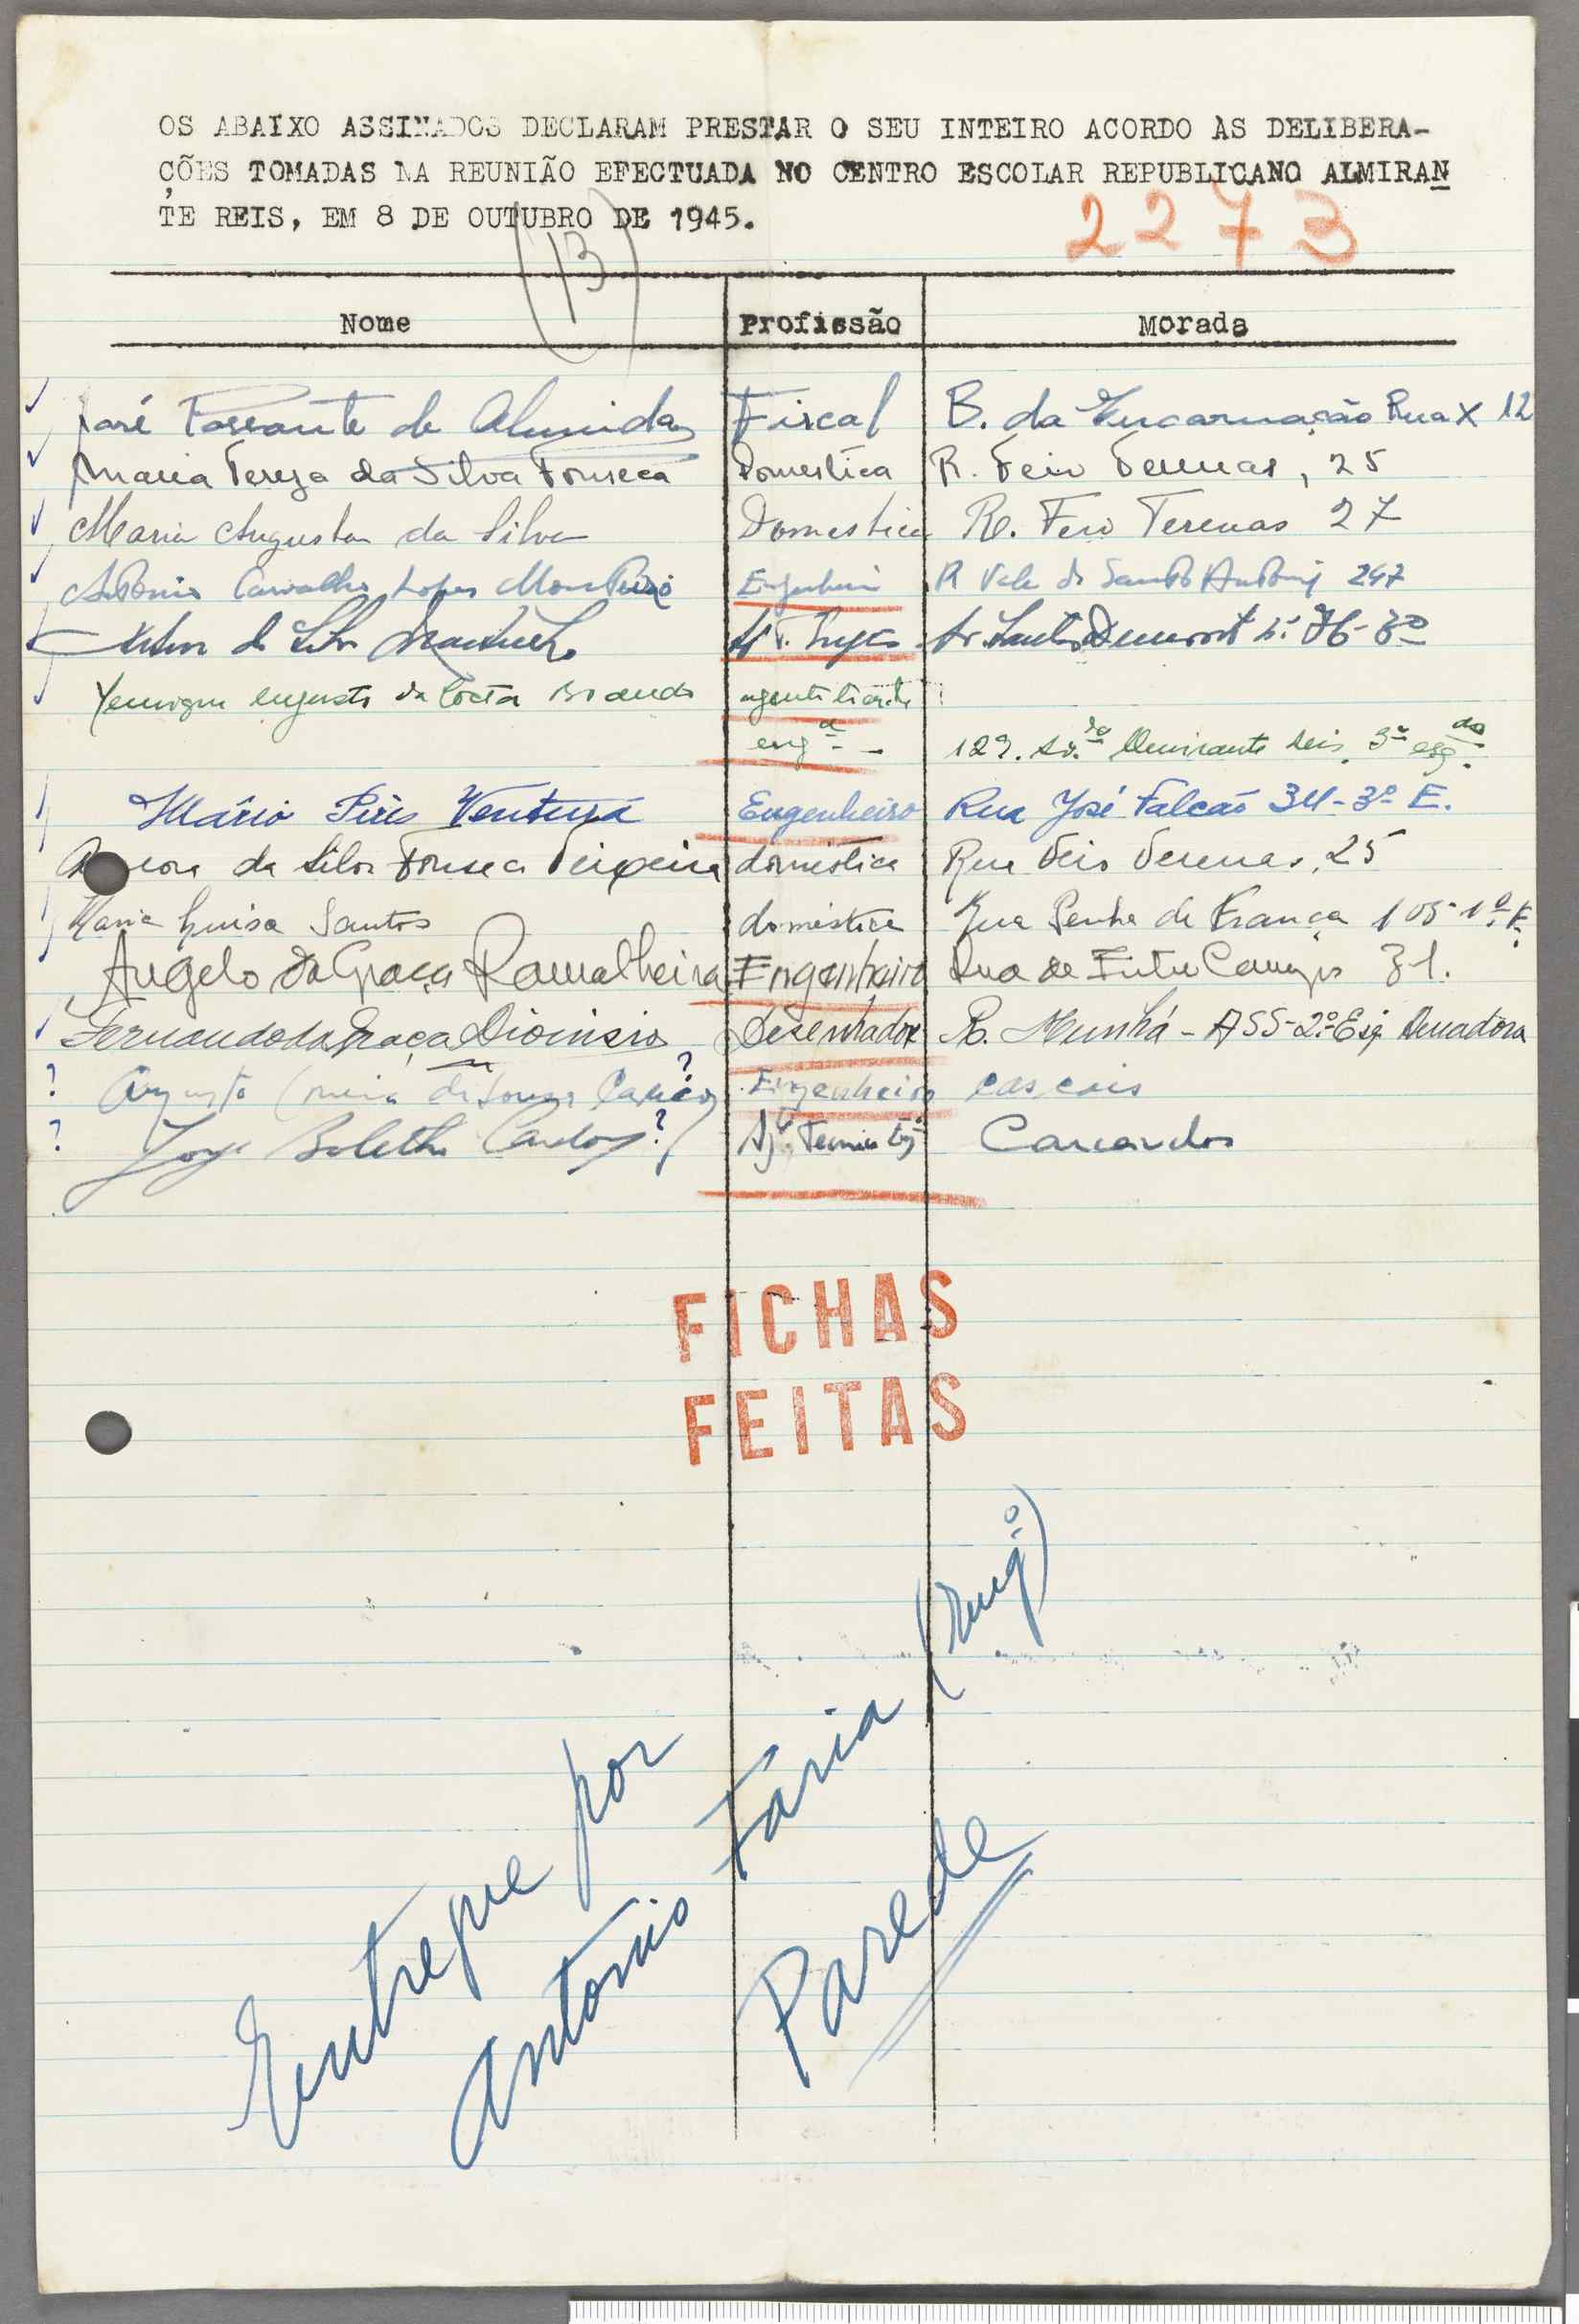 OS ABAIXO ASSINADOS DECLARAM PRESTAR O SEU INTEIRO ACORDO ÀS DELIBERA-
ÇÕES TOMADAS NA REUNIÃO EFECTUADA NO CENTRO ESCOLAR REPUBLICANO ALMIRAN
TE REIS, EM 8 DE OUTUBRO DE 1945.
2273
(13)
Nome Profissão Morada
José de Almeida Fiscal B. da Encarnação Rua X 12
Maria Tereza da Silva Fonseca Domestica R. Feio Terenas, 25
Maria Augusta da Silva Domestica R. Feio Terenas 27
António Carvalho Lopes Monteiro Engenheiro R Vale de Santo António 247
da Silva Av. Santos Dumont
Henrique Augusto da Costa agente técnico
engª - 129. Av.da Almirante Reis. 3º esq.do
Mário Pires Ventura Engenheiro Rua José Falcão 34-3º E.
da Silva Fonseca Teixeira doméstica Rua Feio Terenas, 25
Maria Luisa Santos doméstica Rua Penha de França 105-1º E.
Angelo da Graça Ramalheira Engenheiro Rua de 31.
Fernando da Graça Dionisio Desenhador R. - ASS-2º Esq Amadora
? Augusto de Sousa ? Engenheiro Cascais
? Jorge Cardoso ? Carcavelos
FICHAS
FEITAS
Entregue por
António Faria (Engº)
Parede